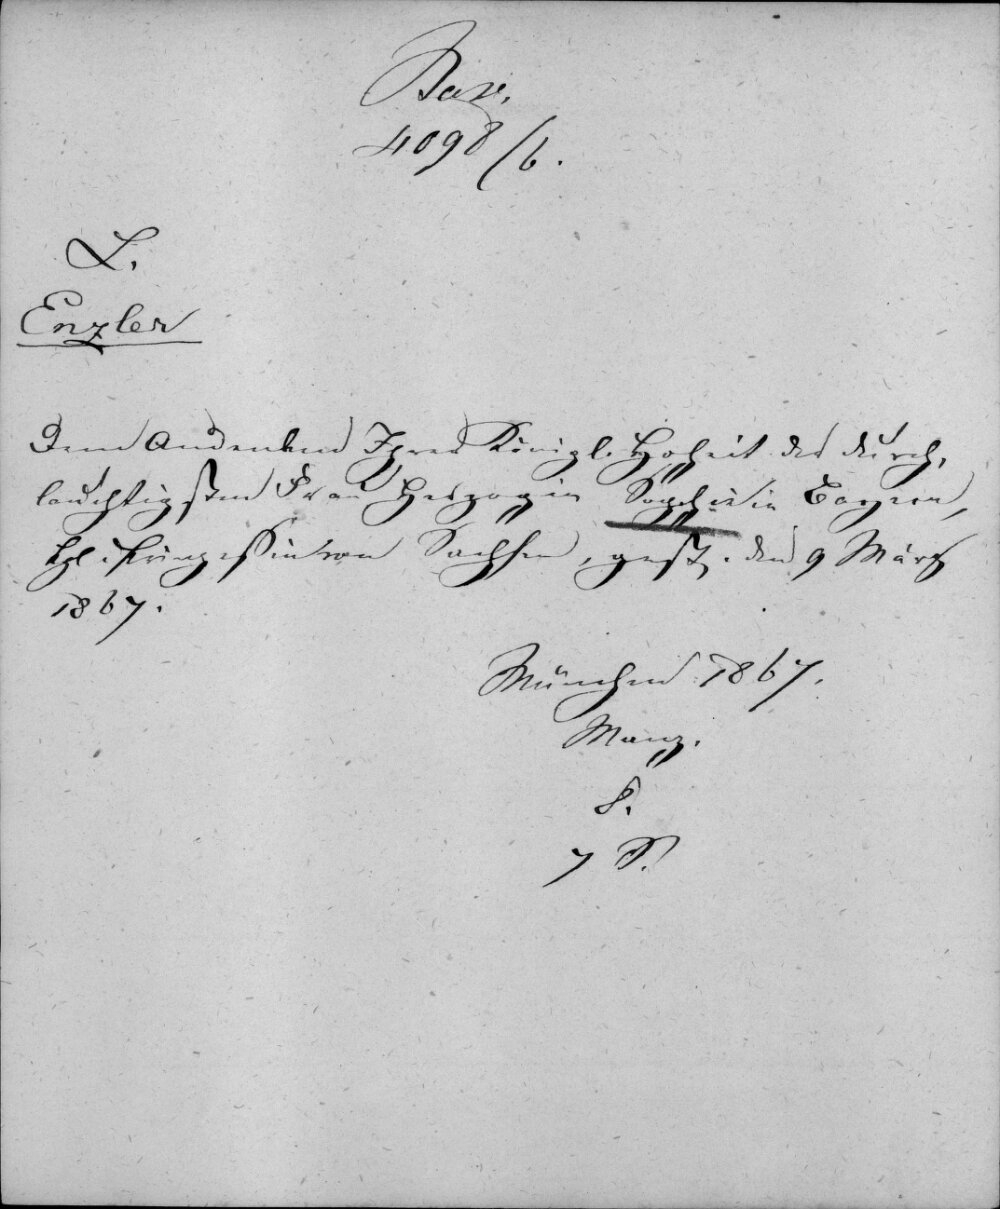 Bavar.
4098/b.
L.
Enzler
Dem Andenken Ihrer Königl. Hoheit der durch,
lauchtigsten Frau Herzogin Sophie in Bayern,
kgl. Prinzessin von Sachsen, gest. den 9 März
1867.
München 1867.
Manz.
8.
7 S.